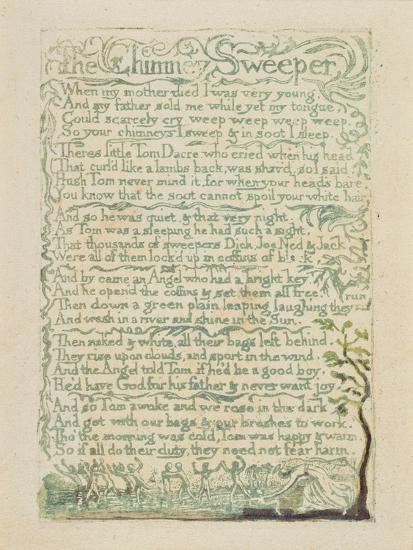 The Chimney Sweeper
When my mother died I was very young,
And my father sold me while yet my tongue,
Could scarcely cry weep weep weep weep.
So your chimneys I sweep & in soot I sleep.
Theres little Tom Dacre who cried when his head
That curl'd like a lambs back, was shav'd, so I said.
Hush Tom never mind it, for when your heads bare,
You know that the soot cannot spoil your white hair
And so he was quiet, & that very night,
As Tom was a sleeping he had such a sight,
That thousands of sweepers Dick, Joe, Ned & Jack
Were all of them lock'd up in coffins of black
And by came an Angel who had a bright key
And he open'd the coffins & set them all free.
Then down a green plain leaping laughing they run
And wash in a river and shine in the Sun.
Then naked & white, all their bags left behind,
They rise upon clouds, and sport in the wind.
And the Angel told Tom, if he'd be a good boy,
He'd have God for his father & never want joy.
And so Tom awoke and we rose in the dark
And got with our bags & our brushes to work.
Tho' the morning was cold, Tom was happy & warm.
So if all do their duty, they need not fear harm.